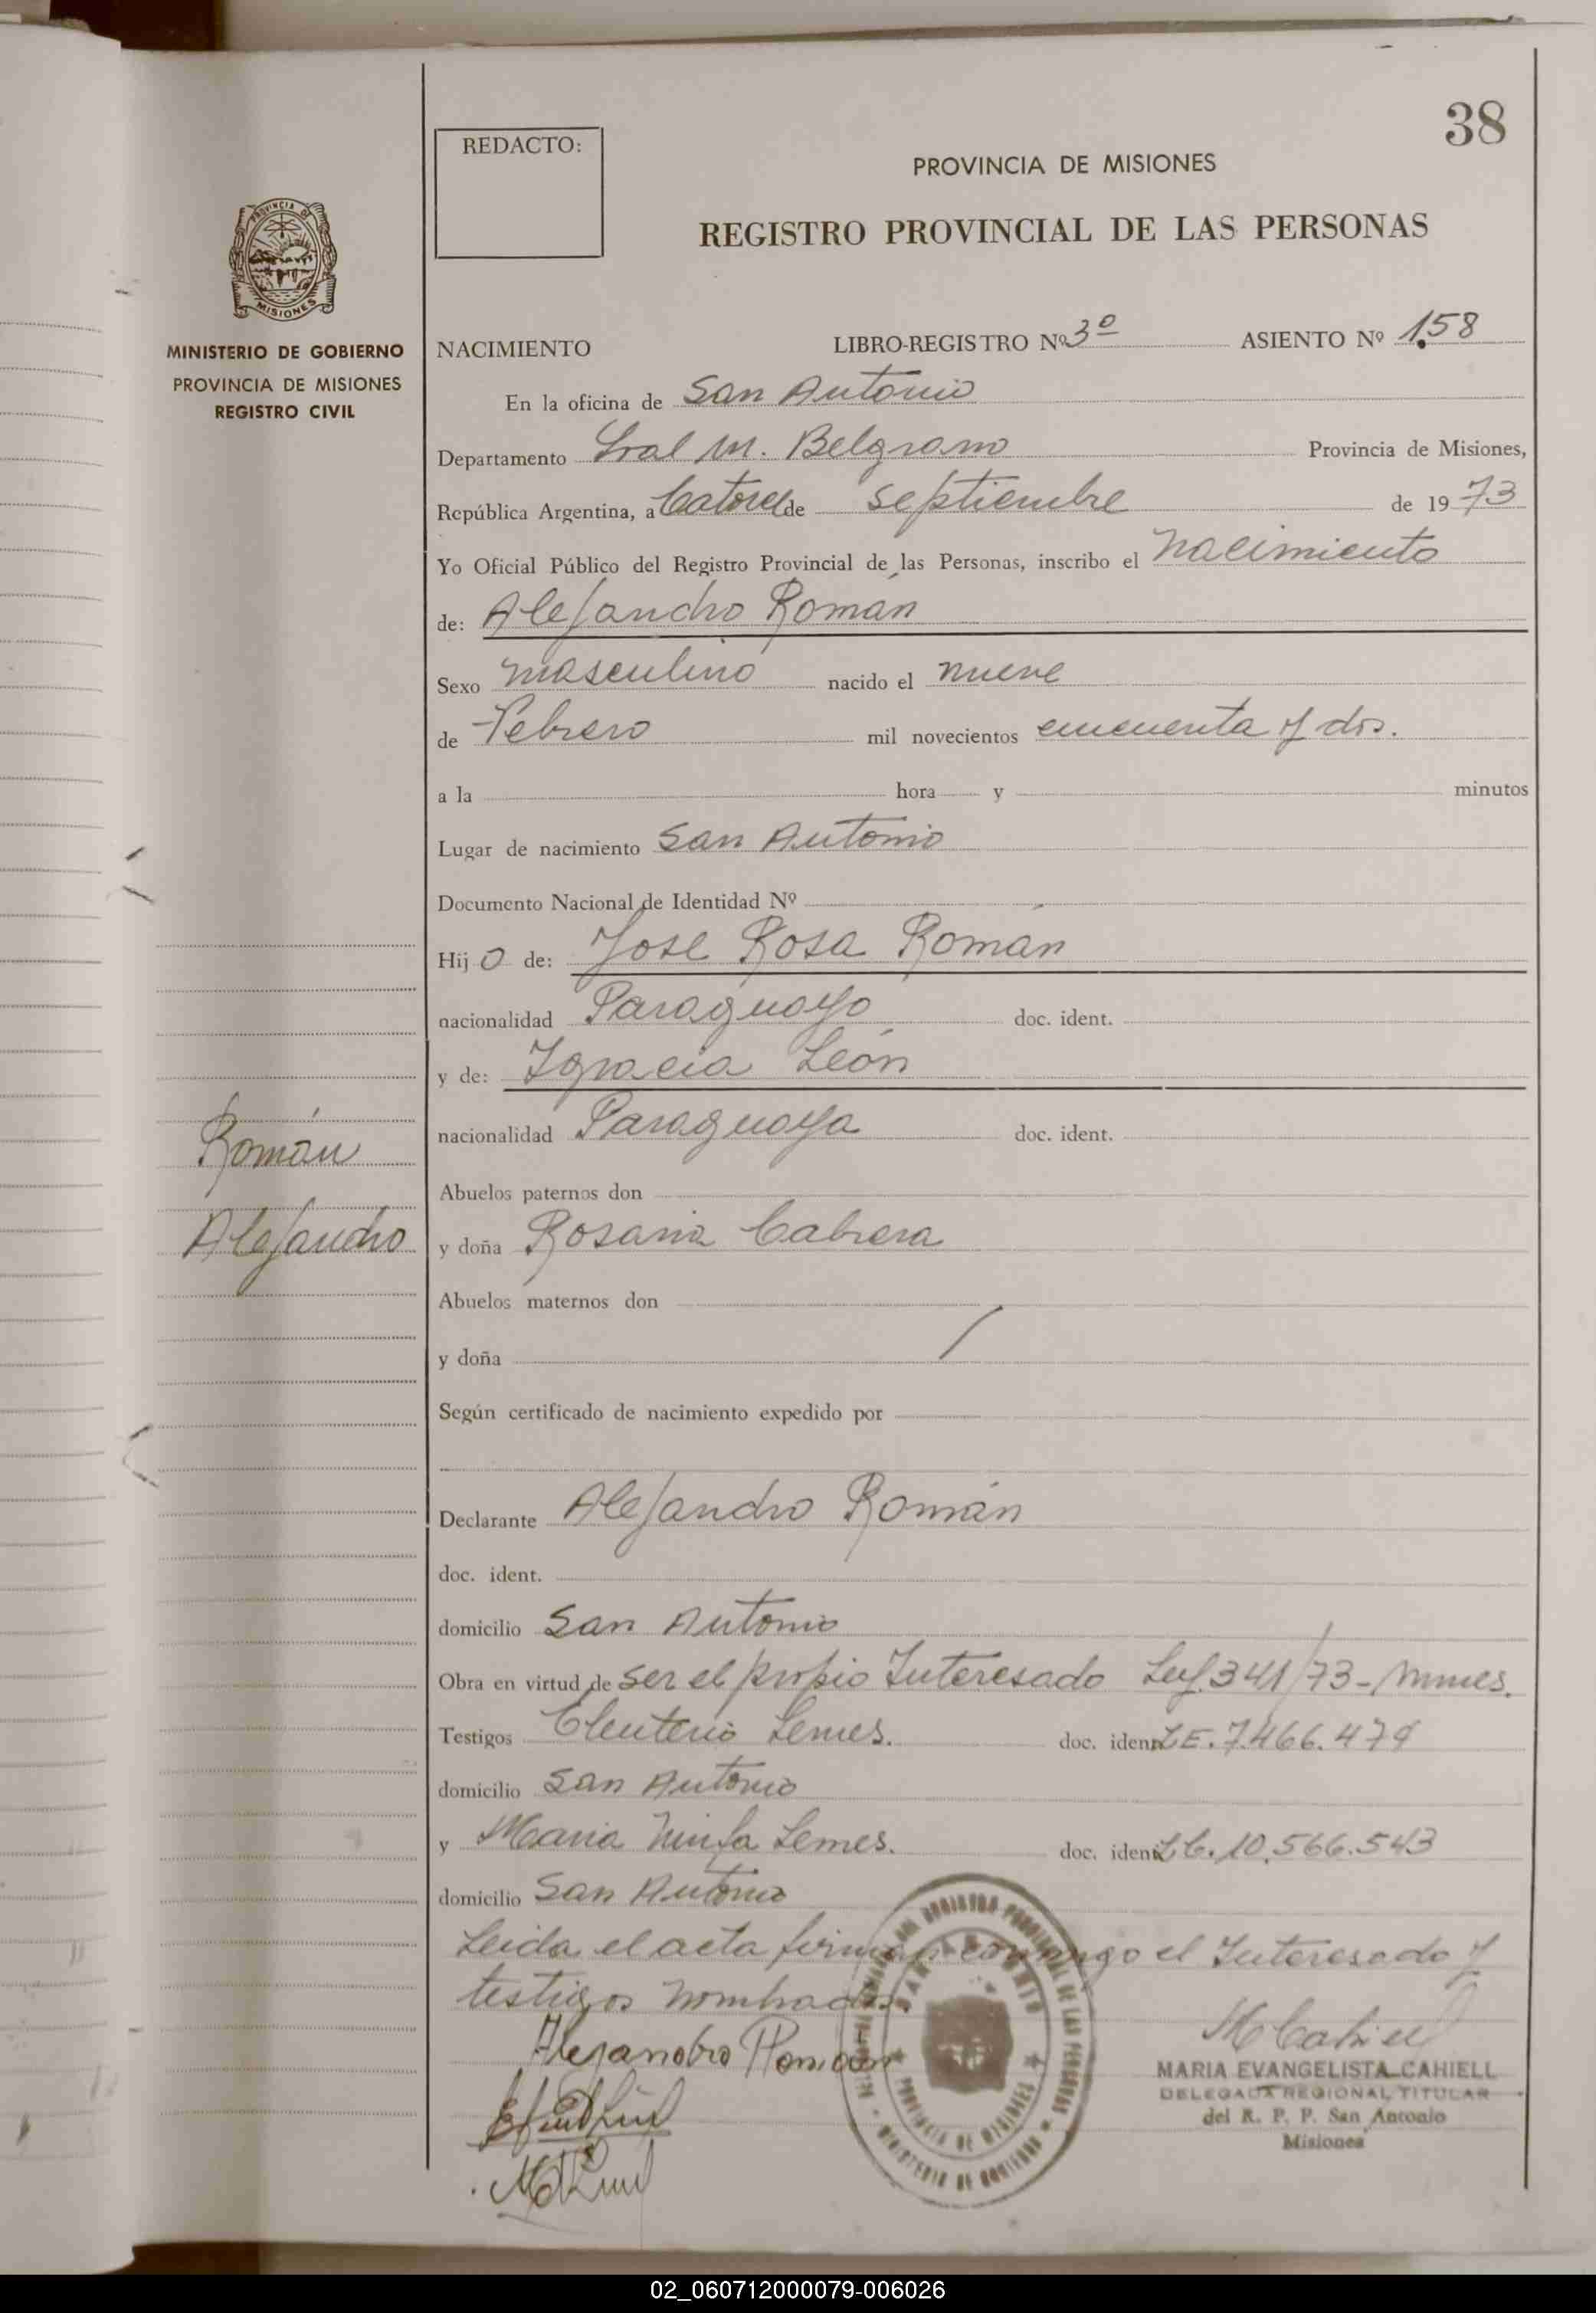 38
REDACTO:
PROVINCIA DE MISIONES
REGISTRO PROVINCIAL DE LAS PERSONAS
PROVINCIA DE
MISIONES
MINISTERIO DE GOBIERNO
PROVINCIA DE MISIONES
REGISTRO CIVIL
NACIMIENTO LIBRO-REGISTRO Nº 3º ASIENTO Nº 158
En la oficina de San Antonio
Departamento Gral M. Belgrano Provincia de Misiones,
República Argentina, a Catorce de septiembre de 1973
Yo Oficial Público del Registro Provincial de las Personas, inscribo el nacimiento
de: Alejandro Román
Sexo masculino nacido el nueve
de Febrero mil novecientos cincuenta y dos.
a la hora y minutos
Lugar de nacimiento San Antonio
Documento Nacional de Identidad Nº
Hijo de: Jose Rosa Román
nacionalidad Paraguayo doc. ident.
y de: Ignacia León
nacionalidad Paraguaya doc. ident.
Román
Abuelos paternos don
Alejandro
y doña Rosaria Cabrera
Abuelos maternos don
y doña
Según certificado de nacimiento expedido por
Declarante Alejandro Román
doc. ident.
domicilio San Antonio
Obra en virtud de ser el propio Interesado Ley 341/73-Mnes.
Testigos Eleuterio Lemes. doc. ident. L E. 7.466.479
domicilio San Antonio
y Maria Ninfa Lemes. doc. ident. L C. 10.566.543
domicilio San Antonio
Leida el acta firman conmigo el Interesado y
testigos nombrados.
Alejandro Roman
MCahiell
MARIA EVANGELISTA CAHIELL
DELEGADA REGIONAL TITULAR
del R. P. P. San Antonio
Misiones
PROVINCIA DE MISIONES
MINISTERIO DE GOBIERNO
02_060712000079-006026